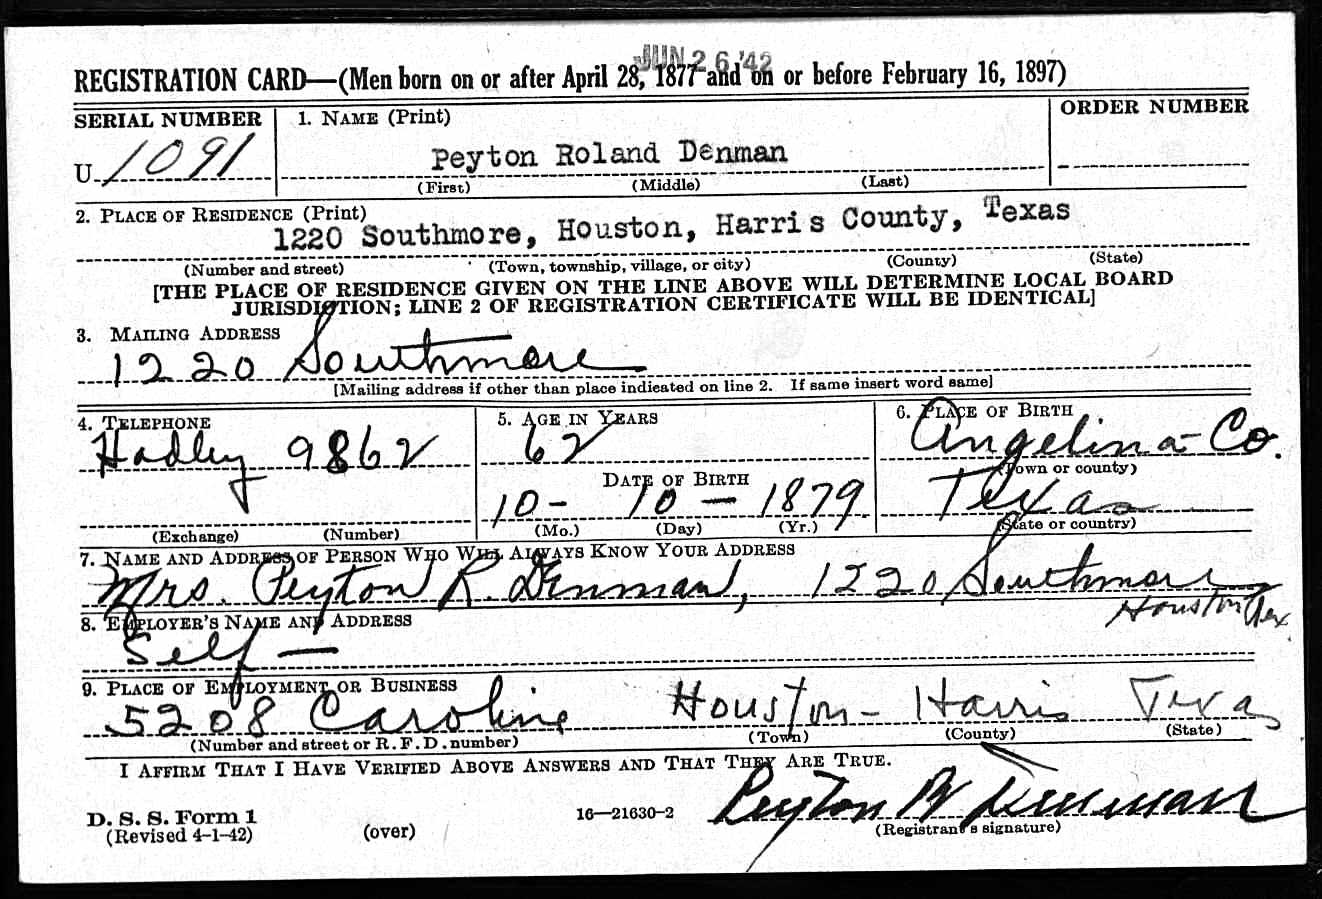 JUN 26 '42
REGISTRATION CARD—(Men born on or after April 28, 1877 and on or before February 16, 1897)
SERIAL NUMBER 1. NAME (Print) ORDER NUMBER
U 1091 Peyton Roland Denman
(First) (Middle) (Last)
2. PLACE OF RESIDENCE (Print)
1220 Southmore, Houston, Harris County, Texas
(Number and street) (Town, township, village, or city) (County) (State)
[THE PLACE OF RESIDENCE GIVEN ON THE LINE ABOVE WILL DETERMINE LOCAL BOARD
JURISDICTION; LINE 2 OF REGISTRATION CERTIFICATE WILL BE IDENTICAL]
3. MAILING ADDRESS
1220 Southmore
[Mailing address if other than place indicated on line 2. If same insert word same]
4. TELEPHONE 5. AGE IN YEARS 6. PLACE OF BIRTH
Hadley 9862 62 Angelina Co.
DATE OF BIRTH (Town or county)
10- 10 - 1879 Texas
(Exchange) (Number) (Mo.) (Day) (Yr.) (State or country)
7. NAME AND ADDRESS OF PERSON WHO WILL ALWAYS KNOW YOUR ADDRESS
Mrs. Peyton R. Denman, 1220 Southmore
Houston Tex.
8. EMPLOYER'S NAME AND ADDRESS
Self —
9. PLACE OF EMPLOYMENT OR BUSINESS
5208 Caroline Houston - Harris Texas
(Number and street or R. F. D. number) (Town) (County) (State)
I AFFIRM THAT I HAVE VERIFIED ABOVE ANSWERS AND THAT THEY ARE TRUE.
D. S. S. Form 1 16—21630-2 Peyton R Denman
(Revised 4-1-42) (over) (Registrant's signature)